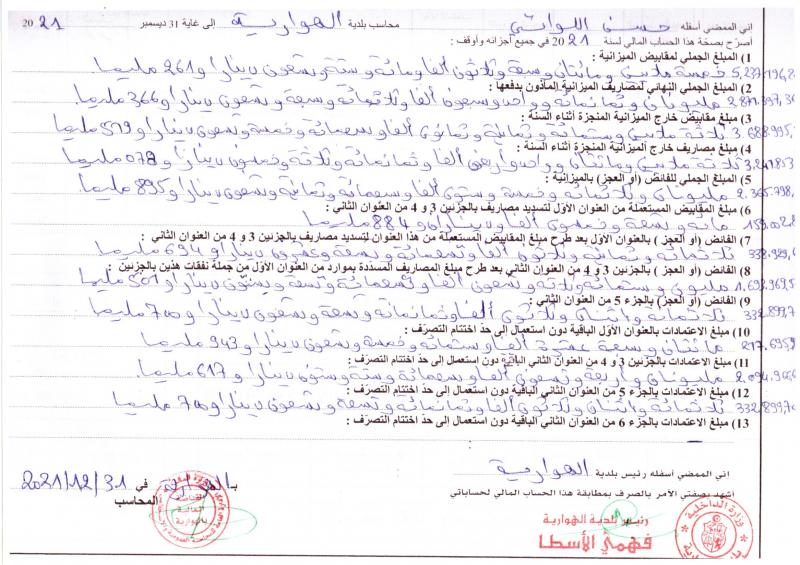 إني الممضي أسفله حسن اللواتي محاسب بلدية الهوارية إلى غاية 31 ديسمبر 2021
أصرّح بصحّة هذا الحساب المالي لسنة 2021 في جميع أجزائه وأوقف :
1) المبلغ الجملي لمقابيض الميزانية :
5.237.196,2 خمسة ملايين ومائتان وسبعة وثلاثون ألفا ومائة وستة وتسعون دينارا و261 مليما
2) المبلغ النهائي لمصاريف الميزانية المأذون بدفعها :
2.871.397,36 مليونان وثمانمائة وواحد وسبعون ألفا وثلاثمائة وسبعة وتسعون دينارا و366 مليما
3) مبلغ مقابيض خارج الميزانية المنجزة أثناء السنة :
3.688.995,5 ثلاثة ملايين وستمائة وثمانية وثمانون ألفا وتسعمائة وخمسة وتسعون دينارا و519 مليما
4) مبلغ مصاريف خارج الميزانية المنجزة أثناء السنة :
3.241.853 ثلاثة ملايين ومائتان وواحد وأربعون ألفا وثمانمائة وثلاثة وخمسون دينارا و078 مليما
5) المبلغ الجملي للفائض (أو العجز) بالميزانية :
2.365.798, مليونان وثلاثمائة وخمسة وستون ألفا وسبعمائة وثمانية وتسعون دينارا و895 مليما
6) مبلغ المقابيض المستعملة من العنوان الأوّل لتسديد مصاريف بالجزئين 3 و 4 من العنوان الثاني :
159.002.8 مائة وتسعة وخمسون ألفا ودينارا و884 مليما
7) الفائض (أو العجز ) بالعنوان الأول بعد طرح مبلغ المقابيض المستعملة من هذا العنوان لتسديد مصاريف بالجزئين 3 و 4 من العنوان الثاني :
338.929,6 ثلاثمائة وثمانية وثلاثون ألفا وتسعمائة وتسعة وعشرون دينارا و694 مليما
8) الفائض (أو العجز ) بالجزئين 3 و 4 من العنوان الثاني بعد طرح مبلغ المصاريف المسدّدة بموارد من العنوان الأوّل من جملة نفقات هذين بالجزئين :
1.693.969,5 مليون وستمائة وثلاثة وتسعون ألفا وتسعمائة وتسعة وستون دينارا و501 مليما
9) الفائض (أو العجز) بالجزء 5 من العنوان الثاني :
332.899,7 ثلاثمائة واثنان وثلاثون ألفا وثمانمائة وتسعة وتسعون دينارا و700 مليما
10) مبلغ الاعتمادات بالعنوان الأوّل الباقية دون استعمال إلى حدّ اختتام التصرّف :
217.695,9 مائتان وسبعة عشرة ألفا وستمائة وخمسة وتسعون دينارا و943 مليما
11) مبلغ الاعتمادات بالجزئين 3 و 4 من العنوان الثاني الباقية دون استعمال إلى حدّ اختتام التصرّف :
2.094.966 مليونان وأربعة وتسعون ألفا وتسعمائة وستة وستون دينارا و617 مليما
12) مبلغ الاعتمادات بالجزء 5 من العنوان الثاني الباقية دون استعمال إلى حدّ اختتام التصرّف :
332.899,70 ثلاثمائة واثنان وثلاثون ألفا وثمانمائة وتسعة وتسعون دينارا و700 مليما
13) مبلغ الاعتمادات بالجزء 6 من العنوان الثاني الباقية دون استعمال إلى حدّ اختتام التصرّف :
إني الممضي أسفله رئيس بلدية الهوارية
أشهد بصفتي الآمر بالصرف بمطابقة هذا الحساب المالي لحساباتي
بـ الهوارية في 2021/12/31
المحاسب
رئيس بلدية الهوارية
فهمي الأسطا
وزارة الداخلية
المالية
بالهوارية